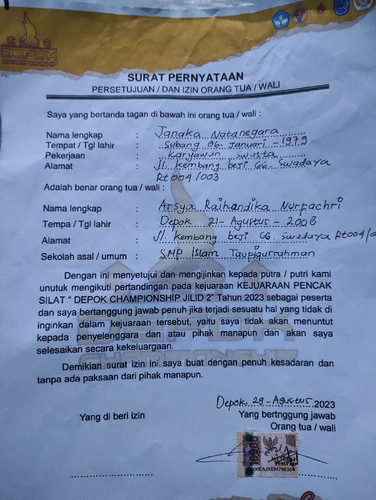 SURAT PERNYATAAN
PERSETUJUAN / DAN IZIN ORANG TUA / WALI
Saya yang bertanda tagan di bawah ini orang tua / wali :
Nama lengkap : Janaka Natanegara
Tempat / Tgl lahir : Subang 06 Januari - 1979
Pekerjaan : Karyawan swasta
Alamat : Jl. kembang beji GG. swadaya
Rt004/003
Adalah benar orang tua / wali :
Nama lengkap : Arsya Raihandika Nurfachri
Tempat / Tgl lahir : Depok 21- Agustus - 2008
Alamat : Jl. kembang beji GG swadaya Rt004/0
Sekolah asal / umum : SMP Islam Taufiqurrahman
Dengan ini menyetujui dan mengijinkan kepada putra / putri kami
unutuk mengikuti pertandingan pada kejuaraan KEJUARAAN PENCAK
SILAT " DEPOK CHAMPIONSHIP JILID 2" Tahun 2023 sebagai peserta
dan saya bertanggung jawab penuh jika terjadi sesuatu hal yang tidak di
inginkan dalam kejuaraan tersebut, yaitu saya tidak akan menuntut
kepada penyelenggara dan atau pihak manapun dan akan saya
selesaikan secara kekeluargaan.
Demikian surat izin ini saya buat dengan penuh kesadaran dan
tanpa ada paksaan dari pihak manapun.
Depok, 29 - Agustus 2023
Yang di beri izin
Yang bertnggung jawab
Orang tua / wali